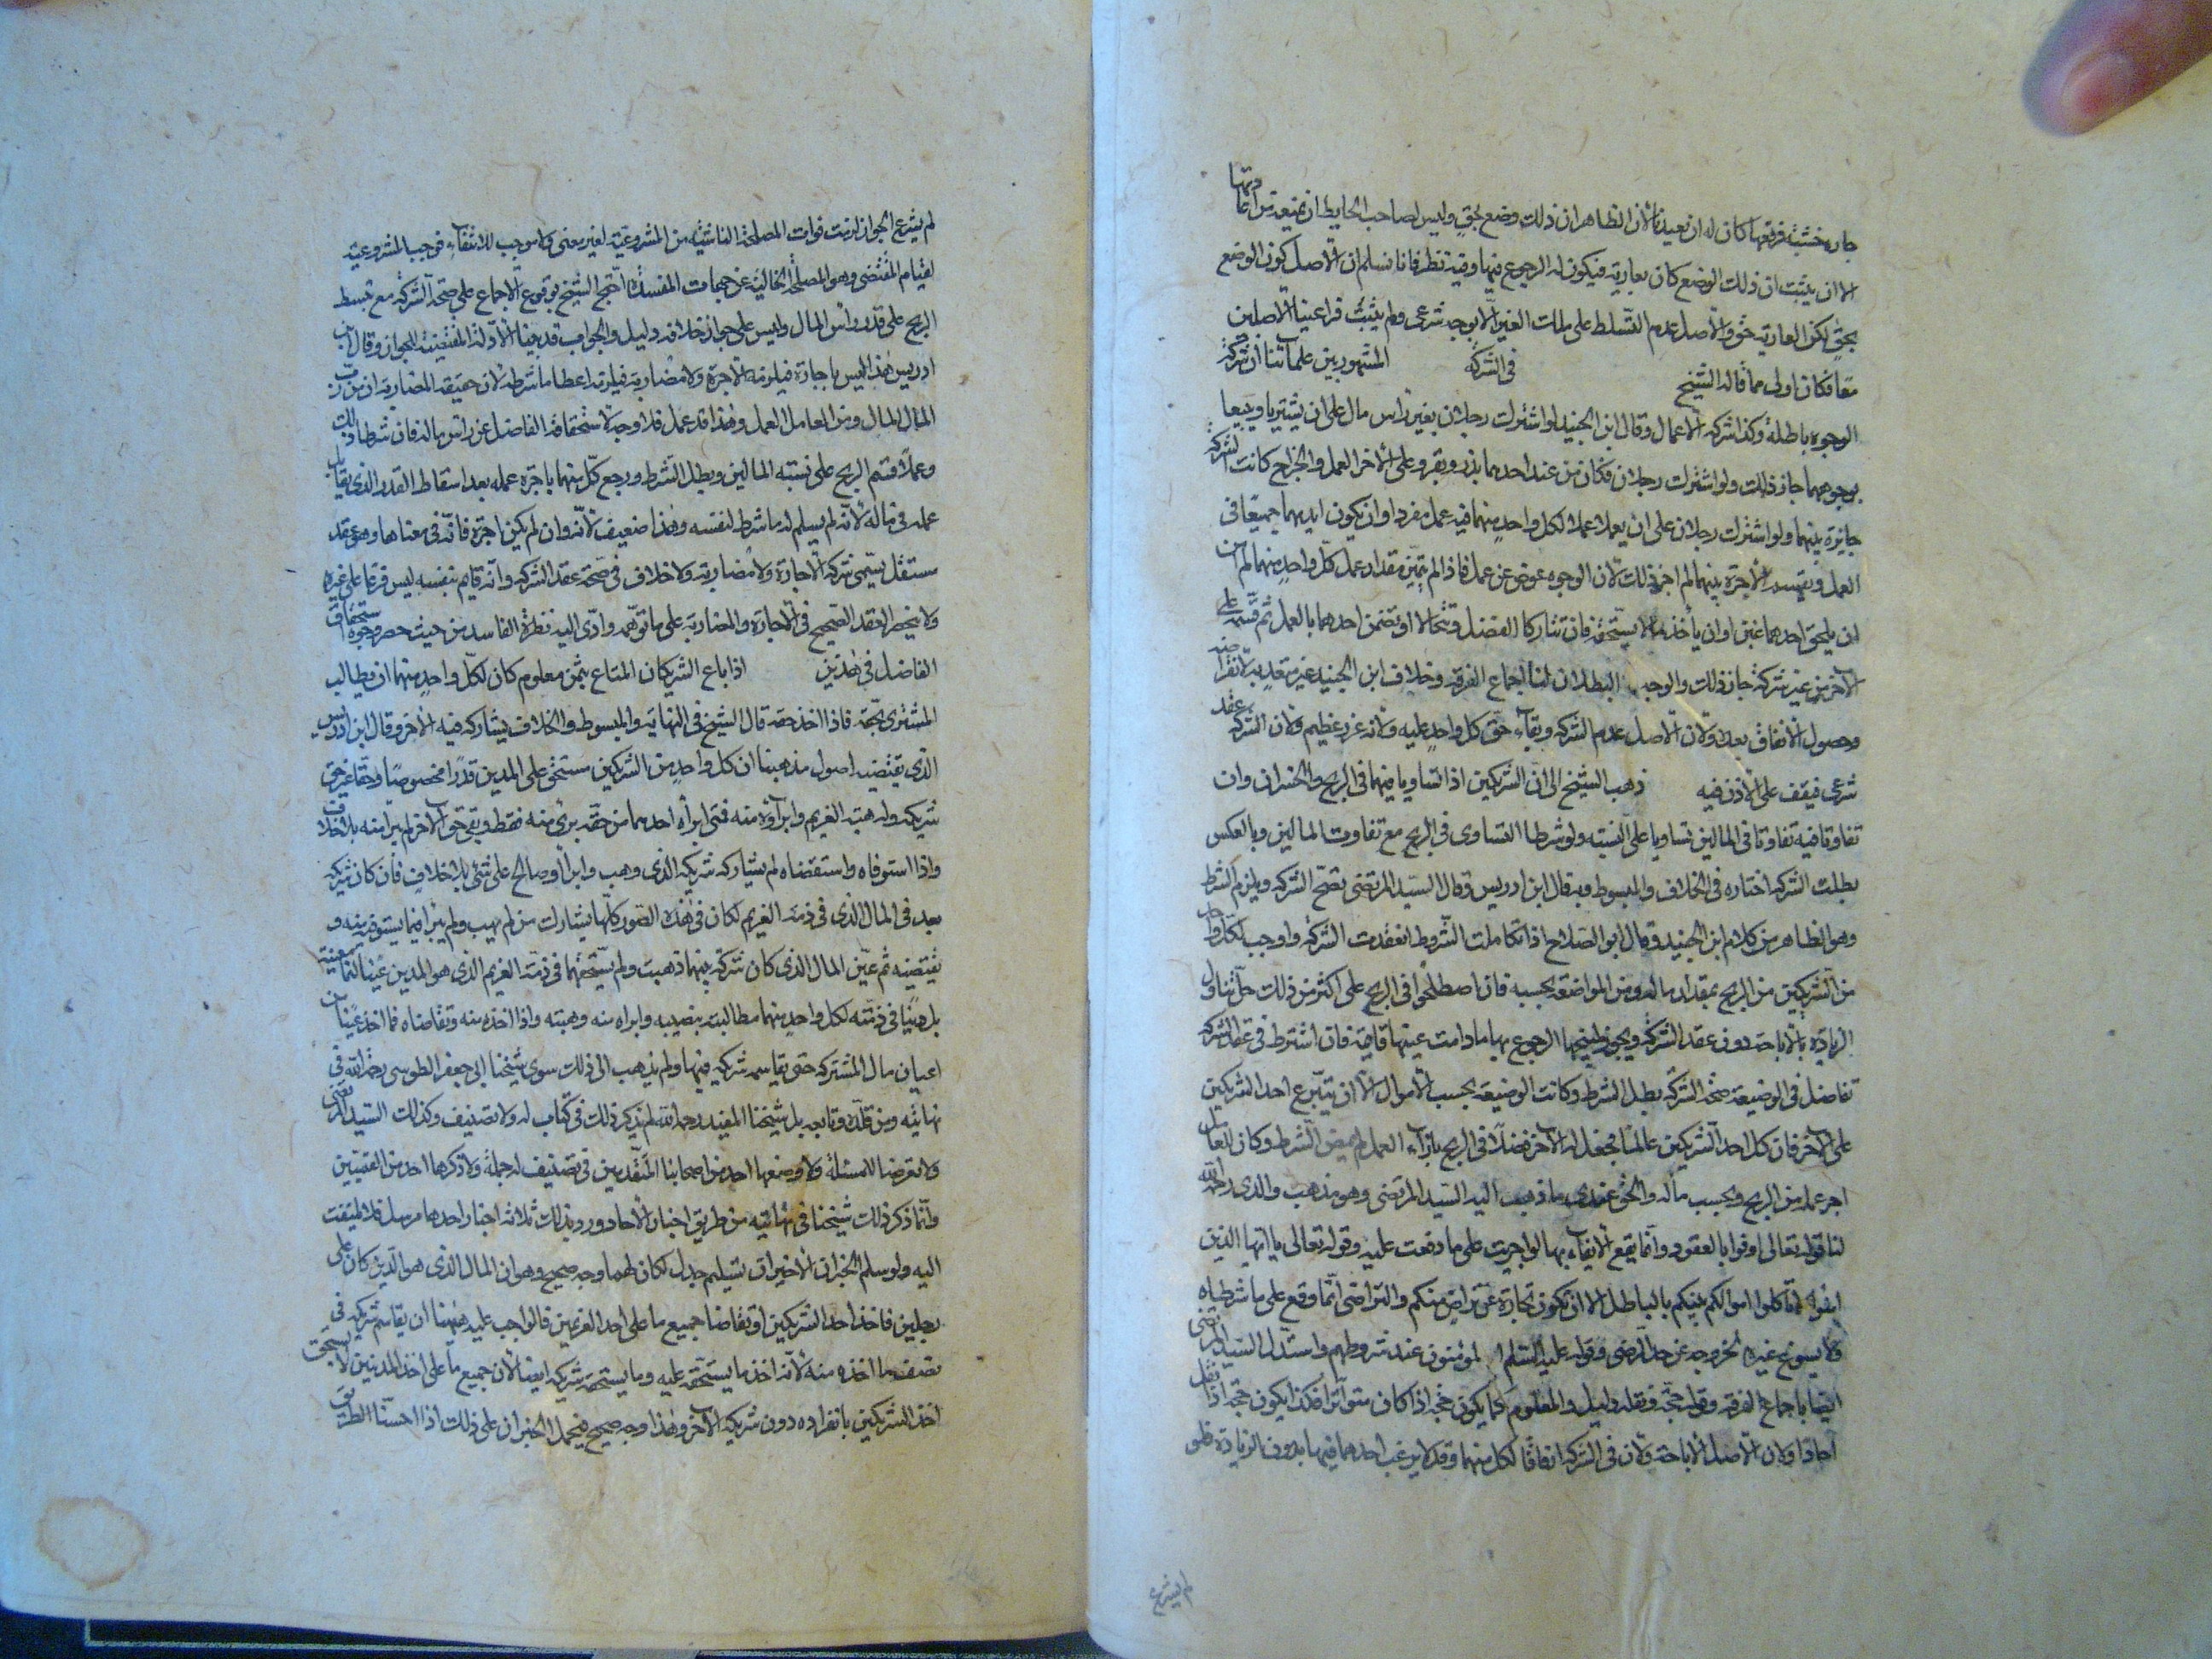 جاره خشبته فرفعها كان له ان يعيدها لان الظاهر ان ذلك وضع بحق وليس لصاحب الحايط ان يمنعه من اعادتها
الا ان يثبت ان ذلك الوضع كان بعارية فيكون له الرجوع فيها وفيه نظر فانا نسلم ان الاصل كون الوضع
بحق لكن العارية حق والاصل عدم التسلط على ملك الغير الا بوجه شرعى ولم يثبت فراعينا الاصلين
معا فكان اولى مما قاله الشيخ في الشركة المشهور بين علمائنا ان شركة
الوجوه باطلة وكذا شركة الاعمال وقال ابن الجنيد لو اشترك رجلان بغير راس مال على ان يشتريا ويبيعا
بوجوههما جاز ذلك ولو اشترك رجلان فكان من عند احدهما بذر وبقر وعلى الاخر العمل والخراج كانت الشركة
جايزة بينهما ولو اشترك رجلان على ان يعملا عملا لكل واحد منهما فيه عمل مفرد او ان يكون ايديهما جميعا في
العمل ويقسم الاجرة بينهما لم اجز ذلك لان الوجوه عوض عن عمل فاذا لم يتميز مقدار عمل كل واحد منهما لم آمن
ان يلحق احدهما غبن او ان يأخذ ما لا يستحقه فان تشاركا الفضل وتحالا او تضمن احدهما بالعمل ثم قسمه على
الاخر من غير شركة جاز ذلك والوجه البطلان لنا اجماع الفرقة وخلاف ابن الجنيد غير معتد به لانقراضه
وحصول الاتفاق بعده ولان الاصل عدم الشركة وبقاء حق كل واحد عليه ولانه غرر عظيم ولان الشركة عقد
شرعى فيقف على الاذن فيه ذهب الشيخ الى ان الشريكين اذا تساويا فيهما في الربح والخسران وان
تفاوتا فيه تفاوتا في المالين تساويا على النسبة ولو شرطا التساوى في الربح مع تفاوت المالين وبالعكس
بطلت الشركة اختاره في الخلاف والمبسوط وبه قال ابن ادريس وقال السيد المرتضى تصح الشركة ويلزم الشرط
وهو الظاهر من كلام ابن الجنيد وقال ابو الصلاح اذا تكاملت الشروط انعقدت الشركة واوجب لكل واحد
من الشريكين من الربح بمقدار ماله ومن الوضيعة بحسبه فان اصطلحوا في الربح على اكثر من ذلك حل تناول
الزيادة بالاباحة دون عقد الشركة ويجوز لمبيحها الرجوع بها ما دامت عينها قائمة فان اشترط في عقد الشركة
تفاضل في الوضيعة صحت الشركة وبطل الشرط وكانت الوضيعة بحسب الاموال الا ان يتبرع احد الشريكين
على الآخر فان كان احد الشريكين عاملا فجعل له الاخر فضلا في الربح بازاء العمل لم يمض الشرط وكان للعامل
اجر عمله من الربح وبحسب ماله والحق عندى ما ذهب اليه السيد المرتضى وهو مذهب والدى رحمه الله
لنا قوله تعالى اوفوا بالعقود وانما يقع الايفاء بها لو اجريت على ما وقعت عليه وقوله تعالى يا ايها الذين
آمنوا لا تأكلوا اموالكم بينكم بالباطل الا ان تكون تجارة عن تراض منكم والتراضى انما وقع على ما شرطاه
فلا يسوغ غيره لخروجه عن حد الرضى وقوله عليه السلم المؤمنون عند شروطهم واستدل السيد المرتضى
ايضا باجماع الفرقة وقوله حجة ونقله دليل والمعلوم كما يكون حجة اذا كان متواترا فكذا يكون حجة اذا نقل
آحادا ولان الاصل الاباحة ولان في الشركة ارفاقا لكل منهما وقد لا يرغب احدهما فيها بدون الزيادة فلو
لم يشرع
لم يشرع الجواز لزمت فوات المصلحة الناشئة من المشروعية لغير معنى ولا موجب للانتفاء فوجب المشروعية
لقيام المقتضى وهو المصلحة الخالية عن جهات المفسدة احتج الشيخ بوقوع الاجماع على صحة الشركة مع تبسط
الربح على قدر راس المال وليس على جواز خلافه دليل والجواب قد بينا الادلة المقتضية للجواز وقال ابن
ادريس هذا ليس باجارة فيلزمه الاجرة ولا مضاربة فيلزمه اعطا ما شرطه لان حقيقة المضاربة ان من رب
المال المال ومن العامل العمل وهذا قد عمل فلا وجه لاستحقاقه الفاضل عن راس ماله فان شرطا ذلك
وعملا قسم الربح على نسبة المالين وبطل الشرط ورجع كل منهما باجرة عمله بعد اسقاط القدر الذى يقابل
عمله في ماله لانه لم يسلم له ما شرط لنفسه وهذا ضعيف لانه وان لم يكن اجرة فانه في معناها وهو عقد
مستقل يسمى شركة لا اجارة ولا مضاربة ولا خلاف في صحة عقد الشركة وانه قايم بنفسه ليس فرعا على غيره
ولا ينحصر العقد الصحيح في الاجارة والمضاربة على ما توهمه وادى اليه نظره الفاسد من حيث حصر وجوه استحقاق
الفاضل في هذين اذا باع الشريكان المتاع بثمن معلوم كان لكل واحد منهما ان يطالب
المشترى بحقه فاذا اخذ حقه قال الشيخ في النهاية والمبسوط والخلاف يشاركه فيه الاخر وقال ابن ادريس
الذى يقتضيه اصول مذهبنا ان كل واحد من الشريكين مستحق على المدين قدرا مخصوصا وحقا غير حق
شريكه وله هبة الغريم وابراؤه منه فمتى ابرأه احدهما من حقه برئ منه فقط وبقى حق الاخر لم يبرا منه بلا خلاف
واذا استوفاه واستقضاه لم يشاركه شريكه الذى وهب وابرأ او صالح على شئ بلا خلاف فان كان شريكه
بعد في المال الذى في ذمة الغريم لكان في هذه الصور كلها يشارك من لم يهب ولم يبرا فيما يستوفيه منه و
يقتضيه ثم عين المال الذى كان شركة بينهما ذهبت ولم يستحقها في ذمة الغريم الذى هو المدين عينا لهما معينة
بل دينا في ذمته لكل واحد منهما مطالبته بنصيبه وابراه منه وهبته واذا اخذه منه وتقاضاه فما اخذ عينا من
اعيان مال المشتركة حتى يقاسمه شريكه فيها ولم يذهب الى ذلك سوى شيخنا ابى جعفر الطوسى رحمه الله في
نهايته ومن قلده وتابعه بل شيخنا المفيد رحمه الله لم يذكر ذلك في كتاب له ولا تصنيف وكذلك السيد المرتضى
ولا تعرضا للمسئلة ولا وضعها احد من اصحابنا المتقدمين في تصنيف له جملة ولا ذكرها احد من القميين
وانما ذكر ذلك شيخنا في نهايته من طريق اخبار الآحاد وورد بذلك ثلاثة اخبار احدها مرسل فلا يلتفت
اليه ولو سلم الخبران الاخيران تسليم جدل لكان لهما وجه صحيح وهو ان المال الذى هو الدين كان على
رجلين فاخذ احد الشريكين وتقاضا جميع ما على احد الغريمين فالواجب عليه ههنا ان يقاسم شريكه في
نصف ما اخذه منه لانه اخذ ما يستحقه عليه وما يستحقه شريكه ايضا لان جميع ما على احد المدينين لا يستحق
احد الشريكين بانفراده دون شريكه الاخر وهذا وجه صحيح فيحمل الخبران على ذلك اذا احسنا الظن